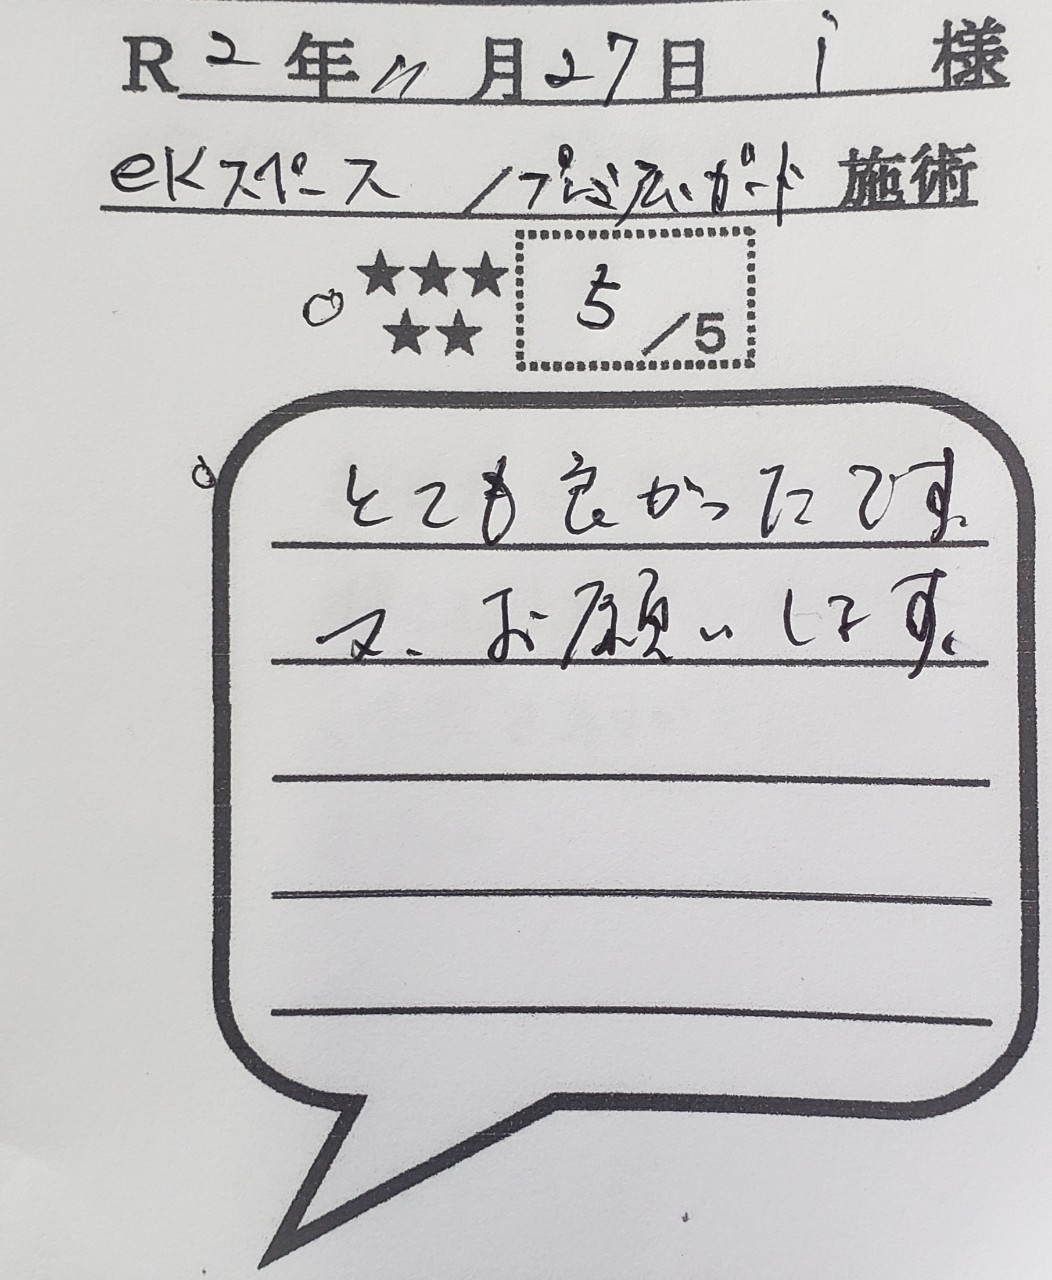 R2年11月27日 i 様
eKスペース /プレミ広いガード 施術
★★★ 5/5
★★
とても良かったです。
又、お願いします。